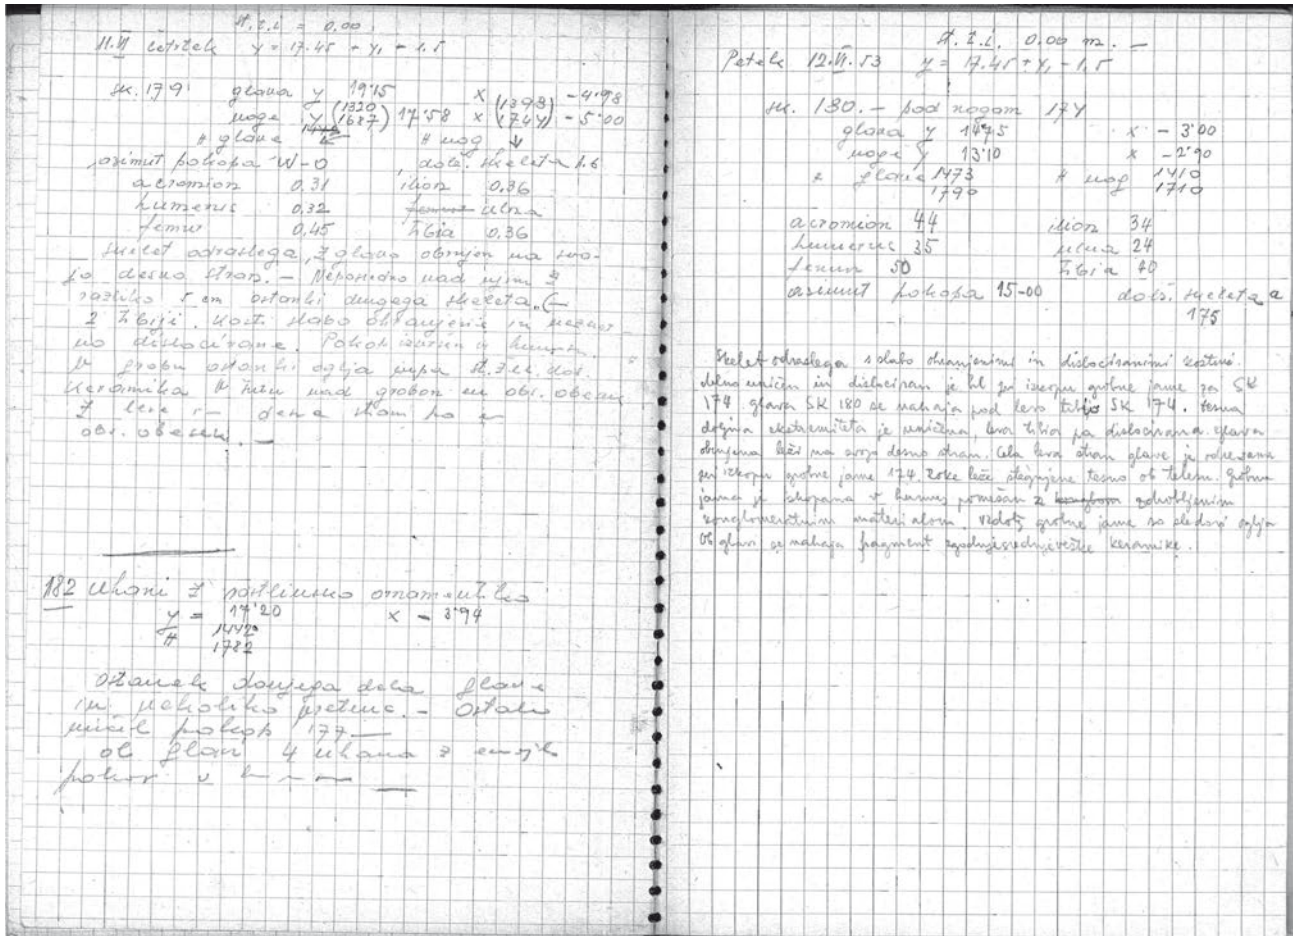 št. z. i. = 0.00
11.VI četrtek y = 17.45 + y, - 1.5
sk. 179 glava y 19'15 x - 4'98
(1320) (1393)
noge y (1687) 17'58 x (1744) - 5'00
H glave H nog ↓
azimut pokopa W-O dolž. skeleta 1.6
acromion 0.31 ilion 0.36
humerus 0.32 ulna
femur 0.45 tibia 0.36
skelet odraslega, z glavo obrnjen na svo-
jo desno stran. - Neposredno nad njim z
razliko 5 cm ostanki drugega skeleta. (-
2 tibiji. Kosti slabo ohranjene in
no dislocirane. Pokop izvršen v humusu.
V grobu ostanki oglja
Keramika nad grobom en obr. obsenč.
Z leve
obr. obsenč. -
182 Uhani z rastlinsko ornamentiko
y = 17'20 x - 3'94
H 1442
1782
ostanek donjega dela glave
in nekoliko pretenc. - Ostalo
uničil pokop 177. -
ob glavi 4 uhana z emajlo
pokop v
št. z. i. 0.00 m. -
Petek 12.VI.53 y = 17.45 + y, - 1.5
sk. 180. - pod nogom 174
glava y 1475 x - 3'00
noge y 13'10 x - 2'90
z glave 1473 H nog 1410
1790 1710
acromion 44 ilion 34
humerus 35 ulna 24
femur 50 tibia 40
azimut pokopa 15-00 dolž. skeleta a
175
Skelet odraslega s slabo ohranjenimi in dislociranimi kostmi.
delno uničen in dislociran je bil pri izkopu grobne jame za SK
174. glava SK 180 se nahaja pod levo tibijo SK 174. desna
doljna ekstremiteta je uničena, leva tibia pa dislocirana. glava
obrnjena leži na svojo desno stran. Cela leva stran glave je odrezana
pri izkopu grobne jame 174. Roke leže stegnjene tesno ob telesu. Grobna
jama je skopana v humus pomešan z zdrobljenim
konglomeratnim materialom. Vzdolž grobne jame so sledovi oglja
Ob glavi se nahaja fragment zgodnjesrednjeveške keramike.